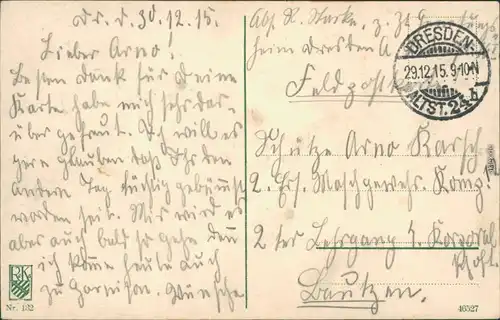 Dr. d. 30.12.15.
Lieber Arno!
Besten Dank für Deine
Karte habe mich sehr dar-
über gefreut. Ich will es
gern glauben daß Ihr den
andern Tag tüchtig
worden seit. Mir wird es
aber auch bald so gehen denn
ich komme heute auch
zu Garnison. Wünsche
RK
Nr. 132
Abs. R. Starke, z. Zt.
heim Dresden A
DRESDEN-
29.12.15. 9-10 N
ALTST. 24 h
Feldpostkarte
Schütze Arno Karsch
2. Ers. Maschgewehr. Komp.
2 ter Lehrgang 4. Korporal
schft.
Bautzen.
46527